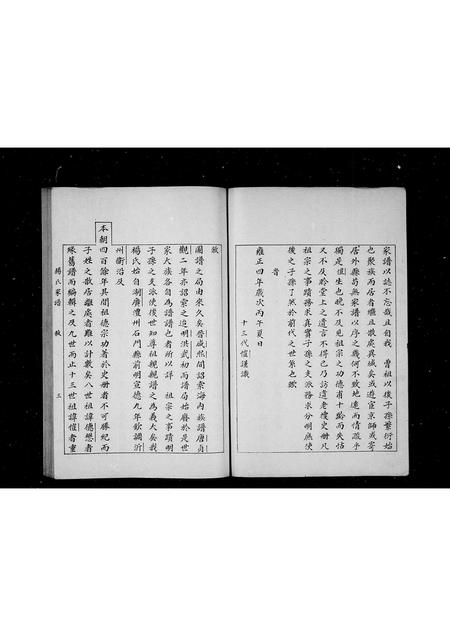 家譜以誌不忘哉且自我 曾祖以後子孫繁衍始
也聚族而居者繼且散處異域矣或遊宦京師或寄
居外縣苟無家譜以序之幾何不致地遠而情疏乎
獨是愃生也晚不及見祖宗之功德甫十齡而失怙
又不及聆堂上之遺言不得已乃訪遺老搜史冊凡
祖宗之事蹟務求真實子孫之支派務求分明庶使
後之子孫了然於前代之世系云歟
旹
雍正四年歲次丙午夏日
十三代愃謹識
敘
圖譜之局由來久矣晉咸熙間詔索海內族譜唐貞
觀二年亦詔索之迨明洪武初而譜局始廢於是世
家大族各自為譜譜也者所以詳 祖宗之事蹟明
子孫之支派使後世知尊祖親親譜之為義大矣我
楊氏始自湖廣澧州石門縣前明宣德九年欽調沂
州衛沿及
本朝四百餘年其間祖德宗功著於史冊者不可勝紀而
子姓之散居離處者難以計數矣八世祖諱德懋者
緣舊譜而編輯之及九世而止十三世祖諱愃者重
楊氏家譜 敘 三